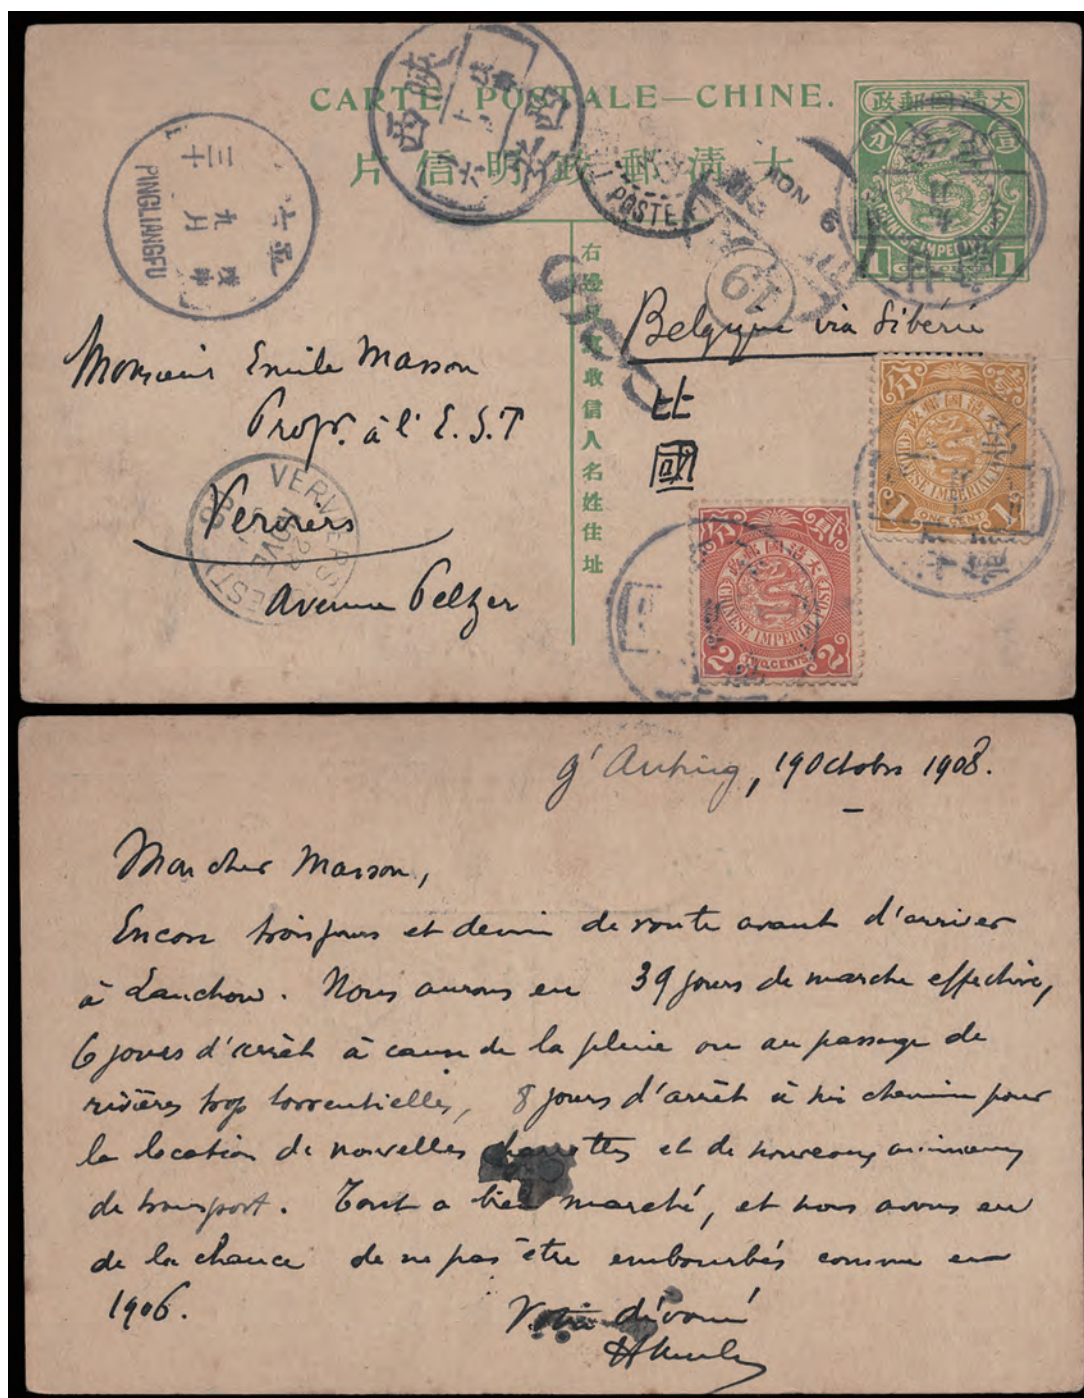 CARTE POSTALE—CHINE.
大清郵政明信片
大清國郵政
壹
分
CHINESE IMPERIAL POST
1
1
陝
西
平
三十
九月
PINGLIANGFU
POSTE
NOV
6
19
右邊只寫收信人名姓住址
Belgique via Sibérie
比
國
Monsieur Emile Masson
Prof. à l'E.S.T
Verviers
Avenue Peltzer
VERVIERS
OUEST
大清國郵政
CHINESE IMPERIAL POST
1
ONE CENT
1
大清國郵政
CHINESE IMPERIAL POST
2
TWO CENTS
2
19 Octobre 1908.
Mon cher Masson,
Encore trois jours et demi de route avant d'arriver
à Lanchow. Nous aurons eu 39 jours de marche effective,
6 jours d'arrêt à cause de la pluie ou au passage de
rivières trop torrentielles, 8 jours d'arrêt à mi chemin pour
la location de nouvelles charrettes et de nouveaux animaux
de transport. Tout a bien marché, et nous avons eu
de la chance de ne pas être embourbés comme en
1906.
Votre dévoué